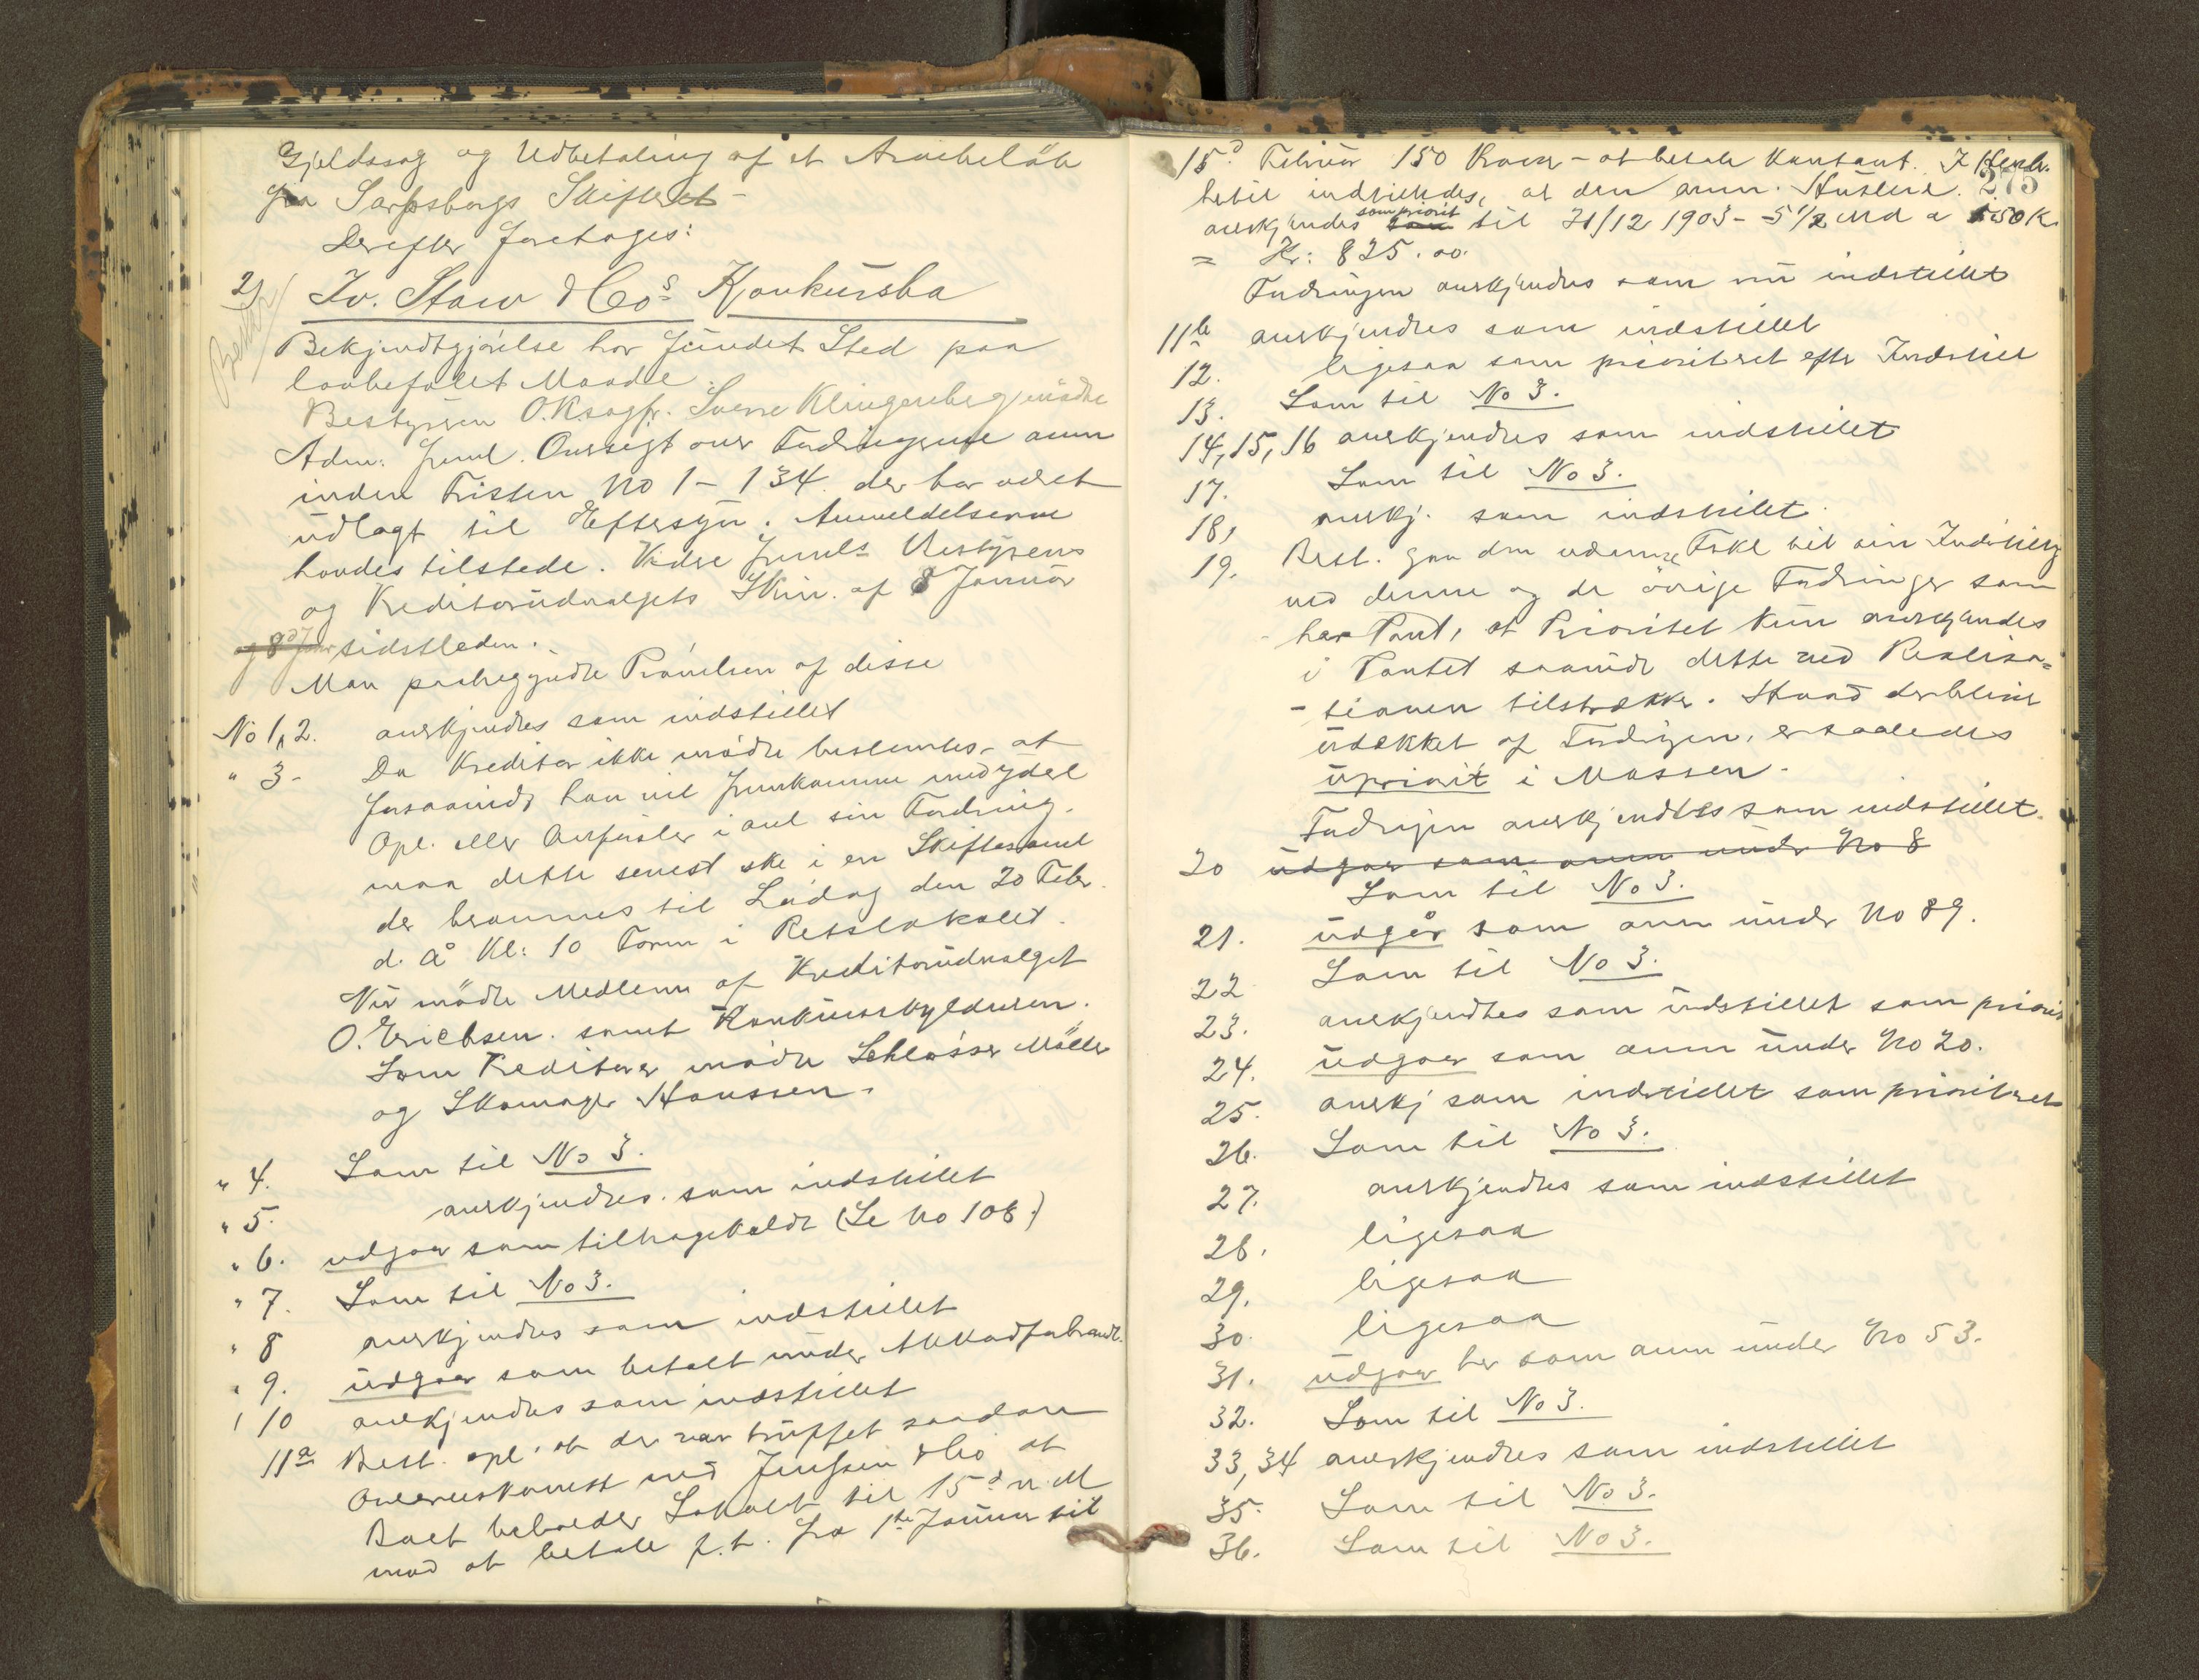 Gjeldssag og Udbetaling af et Arvebeløb
fra Sarpsborgs Skifteret -
Derefter foretoges:
2) Iv. Staw & Cos Konkursbo
Bekjendtgjørelse har fundet Sted paa
lovbefalet Maade.
Bestyreren O.R.sagfr. Sverre Klingenberg mødte
Adm. freml. Oversigt over Fordringerne anm
inden Fristen No 1 - 134 der har været
udlagt til Eftersyn. Anmeldelserne
havdes tilstede. Videre fremls Bestyrens
og Kreditorudvalgets Skriv. af 8 Januar
og 8d Janr sidstleden.
Man paabegyndte Prøvelsen af disse
No 1, 2. anerkjendtes som indstillet
" 3 - Da Kreditor ikke mødte bestemtes, at
forsaavidt han vil fremkomme med ydel
Opl. eller Anførsler i anl sin Fordring.
maa dette senest ske i en Skiftesaml
der berammes til Lørdag den 20 Febr.
d. Å Kl: 10 Form i Retslokalet.
Nu mødte Medlem af Kreditorudvalget
O. Erichsen. samt Konkursskyldneren.
Som Kreditorer mødte Schløsser Møller
og Skomager Hanssen.
" 4. Som til No 3.
" 5. anerkjendtes. som indstillet
" 6. udgaar som tilbagekaldt (Se No 108.)
" 7. Som til No 3.
" 8 anerkjendtes som indstillet
" 9. udgaar som betalt under Akkordforhandl.
" 10 anerkjendtes som indstillet
11a Best. opl. at der var truffet saadan
Overenskomst med Jenssen & Co at
Boet beholder Lokalet til 15d n. M
mod at betale f. t. fra 1ste Januar til
275
15d Februar 150 Kroner - at betale kontant. I Henh.
hertil indstilledes, at den anm. Husleie.
anerkjendes som priorit til 31/12 1903 - 5 1/2 Md a 150 K
= Kr: 825.00.
Fordringen anerkjendtes som nu indstillet
11b anerkjendtes som indstillet
12. ligesaa som prioriteret efter Indstill
13. Som til No 3.
14, 15, 16 anerkjendtes som indstillet
17. Som til No 3.
18, anerkj. som indstillet.
19. Best. gav den nærmere Forkl til sin Indstilling
ved denne og de øvrige Fordringer som
har Pant, at Prioritet kun anerkjendes
i Pantet saavidt dette ved Realisa=
- tionen tilstrækker. Hvad der bliver
udækket af Fordringen, er saaledes
upriorit i Massen.
Fordringen anerkjendtes som indstillet.
20 udgaar som anm under No 8
Som til No 3.
21. udgår som anm under No 89.
22 Som til No 3.
23. anerkjendtes som indstillet som priorit
24. udgaar som anm under No 20.
25. anerkj som indstillet som prioriteret
26. Som til No 3.
27. anerkjendtes som indstillet
28. ligesaa
29. ligesaa
30. ligesaa
31. udgaar her som anm under No 53.
32. Som til No 3.
33, 34 anerkjendtes som indstillet
35. Som til No 3.
36. Som til No 3.